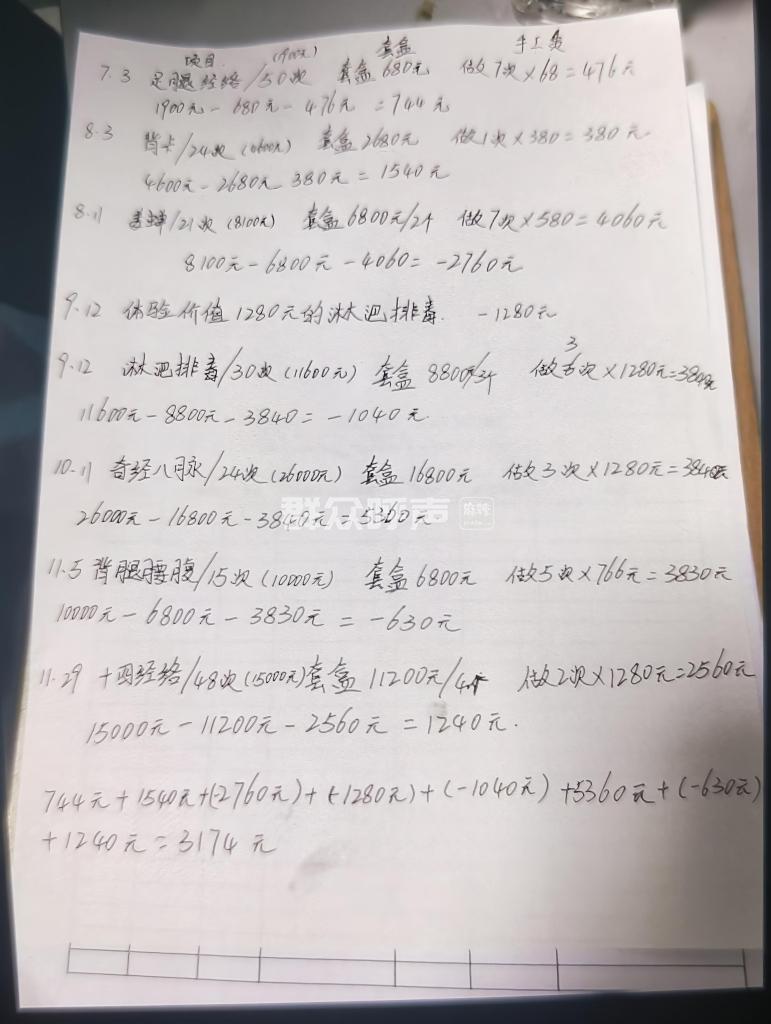 项目 (1900元) 套盒 手工费
7.3 足腿经络/50次 套盒680元 做7次×68=476元
1900元-680元-476元=744元
8.3 背卡/24次(4600元) 套盒2680元 做1次×380=380元
4600元-2680元 380元=1540元
8.11 /21次(8100元) 套盒6800元/2个 做7次×580=4060元
8100元-6800元-4060=-2760元
9.12 体验价值1280元的淋巴排毒. -1280元
3
9.12 淋巴排毒/30次(11600元) 套盒8800元/3个 做次×1280元=3840元
11600元-8800元-3840=-1040元.
10.11 奇经八脉/24次(26000元) 套盒16800元 做3次×1280元=3840元
26000元-16800元-3840元=5360元
群众呼声 麻辣
11.5 背腿腰腹/15次(10000元) 套盒6800元 做5次×766元=3830元
10000元-6800元-3830元=-630元
11.29 十四经络/48次(15000元)套盒11200元/4个 做2次×1280元=2560元
15000元-11200元-2560元=1240元.
744元+1540元+(2760元)+(-1280元)+(-1040元)+5360元+(-630元)
+1240元=3174元